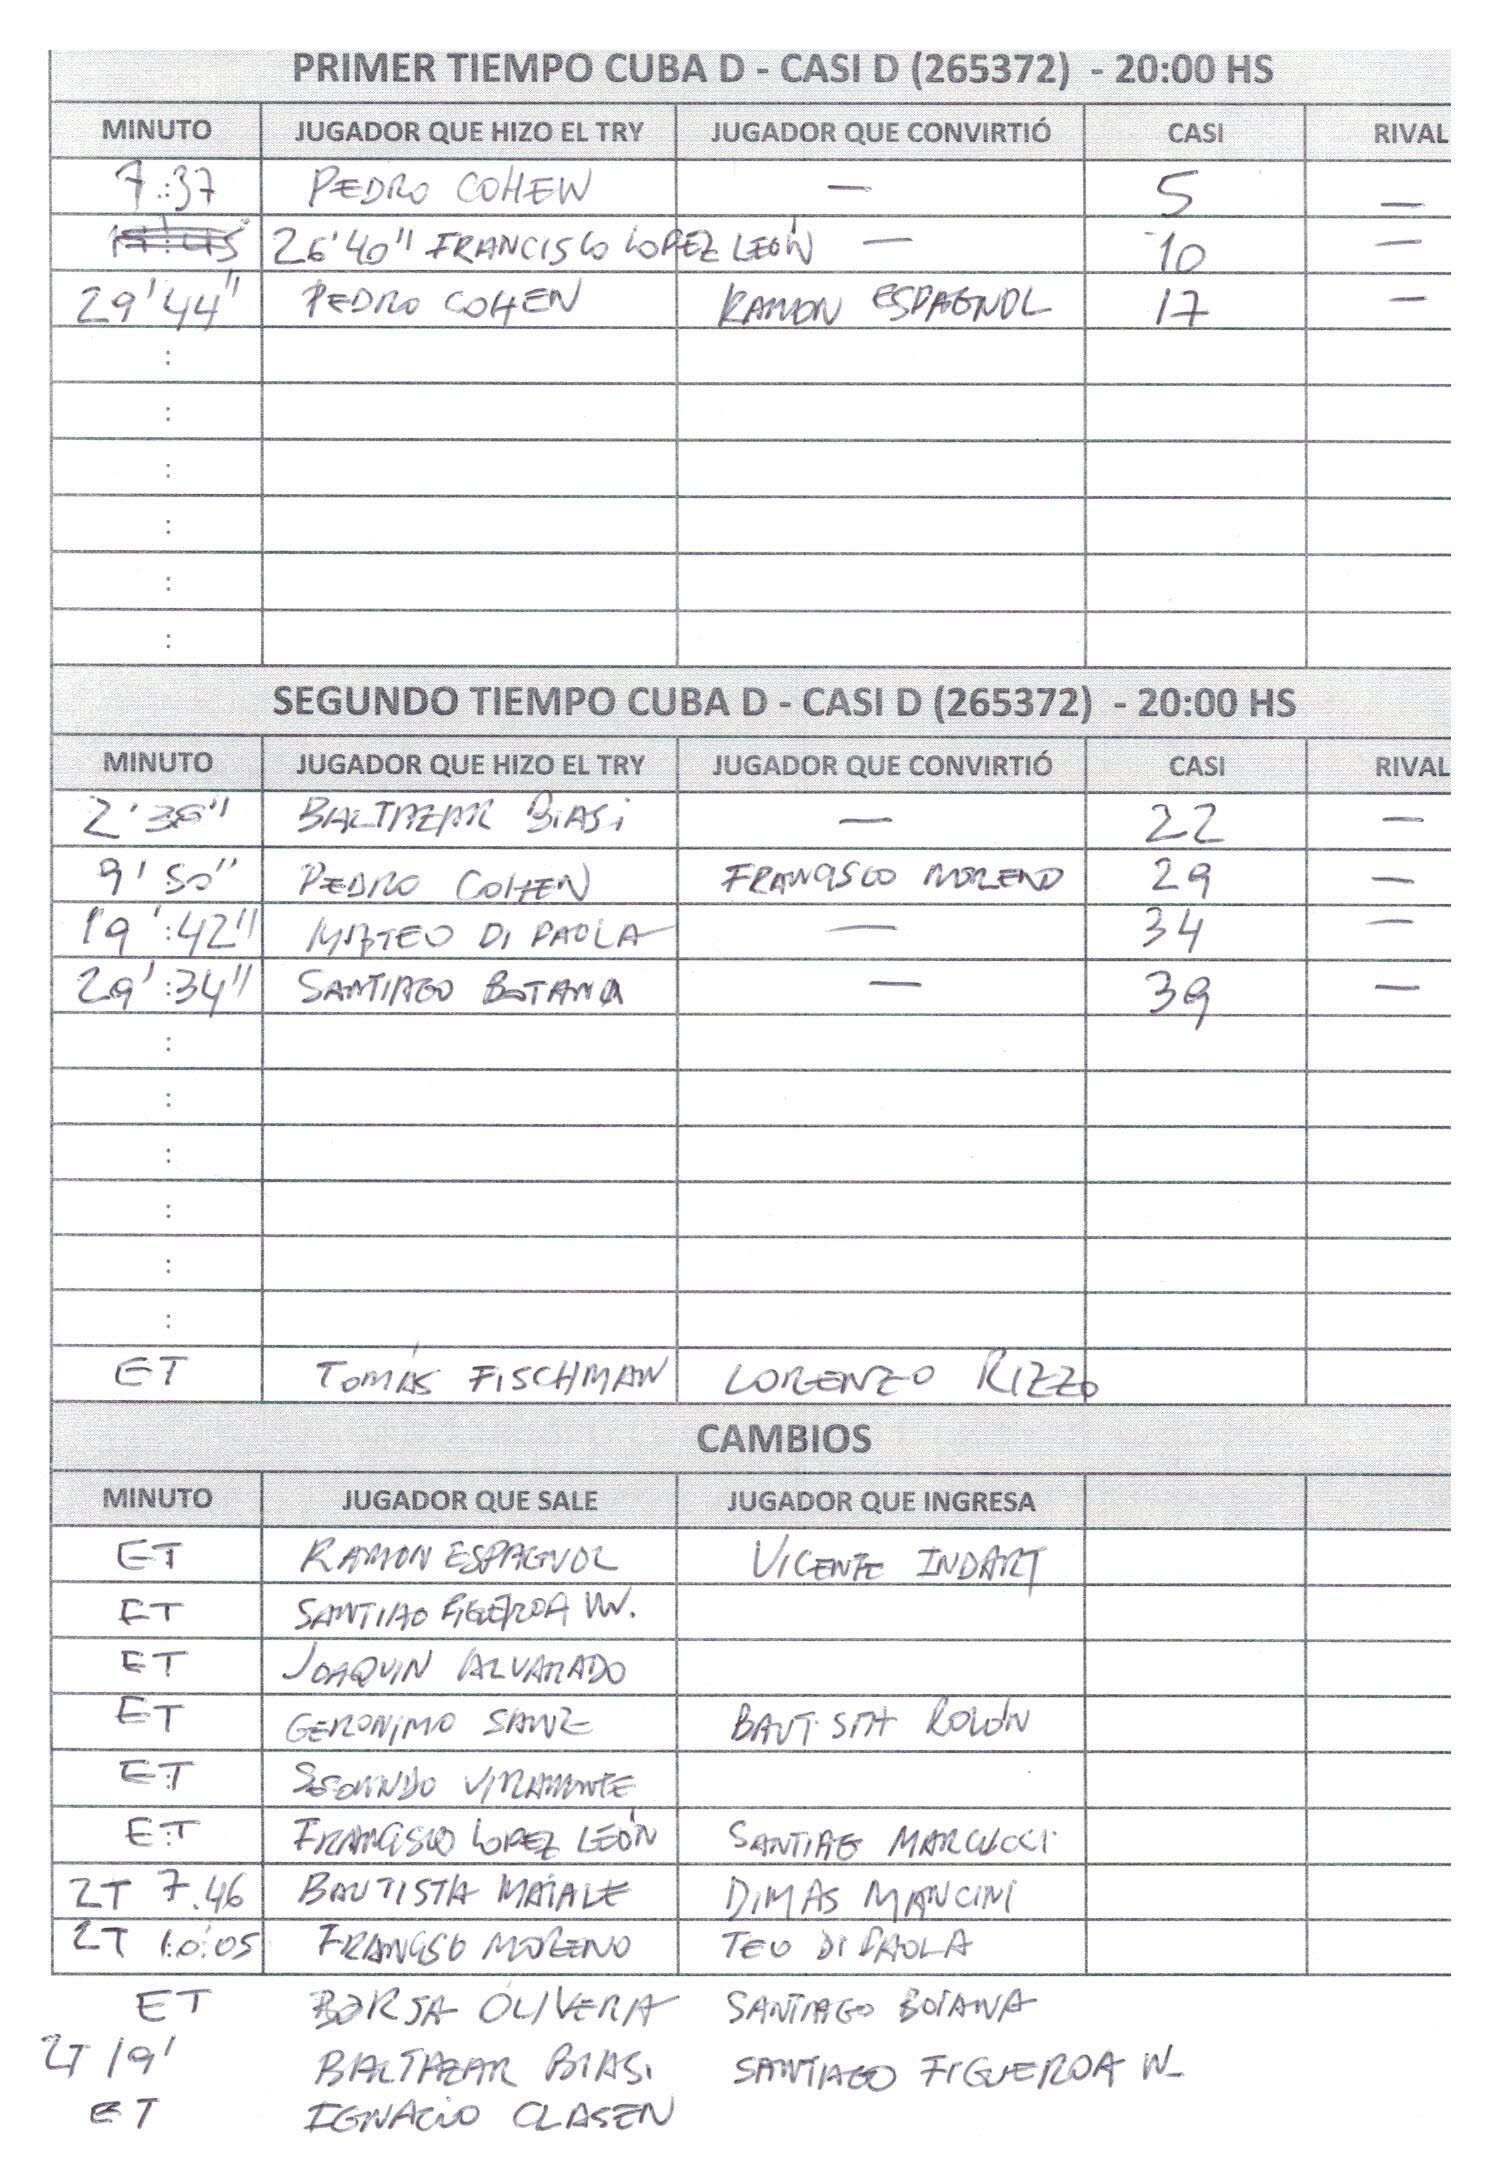 PRIMER TIEMPO CUBA D - CASI D (265372) - 20:00 HS
MINUTO JUGADOR QUE HIZO EL TRY JUGADOR QUE CONVIRTIÓ CASI RIVAL
7:37 PEDRO COHEN — 5 —
26'40" FRANCISCO LOPEZ LEÓN — 10 —
29'44" PEDRO COHEN RAMON ESPAGNOL 17 —
:
:
:
:
:
:
SEGUNDO TIEMPO CUBA D - CASI D (265372) - 20:00 HS
MINUTO JUGADOR QUE HIZO EL TRY JUGADOR QUE CONVIRTIÓ CASI RIVAL
BALTAZAR BIASI — 22 —
9'50" PEDRO COHEN FRANCISCO MORENO 29 —
19':42" MATEO DI PAOLA — 34 —
29':34" SANTIAGO BOTANA — 39 —
:
:
:
:
:
:
ET TOMÁS FISCHMAN LORENZO RIZZO
CAMBIOS
MINUTO JUGADOR QUE SALE JUGADOR QUE INGRESA
ET RAMON ESPAGNOL VICENTE INDART
ET SANTIAO FIGUEROA W.
ET JOAQUIN ALVARADO
ET GERONIMO SANZ BAUTISTA ROLÓN
ET SEGUNDO VIRAMONTE
ET FRANCISCO LOPEZ LEÓN SANTIAG MARCUCCI
2T 7.46 BAUTISTA MAIALE DIMAS MANCINI
2T 10:05 FRANCISO MORENO TEO DI PAOLA
ET BORJA OLIVERA SANTIAGO BOTANA
2T 19' BALTAZAR BIASI SANTIAGO FIGUEROA W-
ET IGNACIO CLASEN